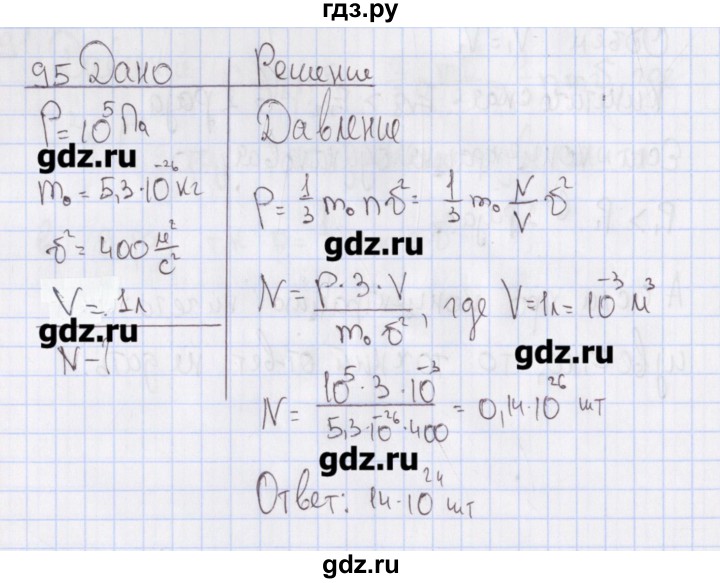 гдз.ру
95 Дано
P = 10⁵ Па
gdz.ru
m₀ = 5,3·10⁻²⁶ кг
υ² = 400 м²/с²
V = 1л
gdz.ru
N -
Решение
Давление
P = 1/3 m₀ n υ² = 1/3 m₀ N/V υ²
gdz.ru
N = P·3·V / m₀ υ², где V = 1л = 10⁻³ м³
gdz.ru
N = 10⁵·3·10⁻³ / 5,3·10⁻²⁶·400 = 0,14·10²⁶ шт
gdz.ru
Ответ: 14·10²⁴ шт
gdz.ru